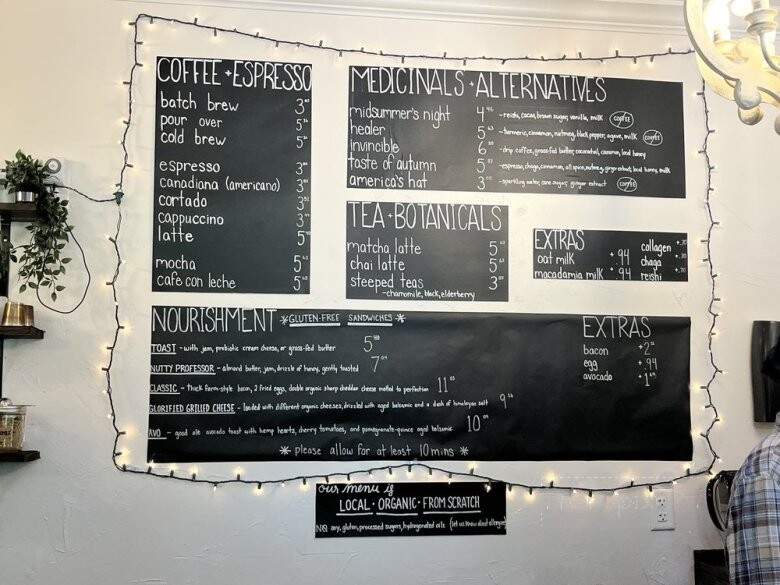 COFFEE + ESPRESSO
batch brew 3
pour over 5
cold brew 5
espresso 3
canadiana (americano) 3
cortado 3
cappuccino 3
latte 5
mocha 5
cafe con leche 5
MEDICINALS + ALTERNATIVES
midsummer's night 4 - reishi, cacao, brown sugar, vanilla, milk COFFEE
healer 5 - turmeric, cinnamon, nutmeg, black pepper, agave, milk COFFEE
invincible 6 - drip coffee, grass-fed butter, coconut oil, cinnamon, local honey
taste of autumn 5 - espresso, chaga, cinnamon, all spice, nutmeg, ginger extract, local honey, milk
america's hat 3 - sparkling water, cane sugar, ginger extract COFFEE
TEA + BOTANICALS
matcha latte 5
chai latte 5
steeped teas 3
- chamomile, black, elderberry
EXTRAS
oat milk + .94
macadamia milk + .94
collagen
chaga
reishi
NOURISHMENT * GLUTEN-FREE SANDWICHES *
TOAST - with jam, probiotic cream cheese, or grass-fed butter 5
NUTTY PROFESSOR - almond butter, jam, drizzle of honey, gently toasted 7
CLASSIC - thick farm-style bacon, 2 fried eggs, double organic sharp cheddar cheese melted to perfection 11
GLORIFIED GRILLED CHEESE - loaded with different organic cheeses, drizzled with aged balsamic and a dash of himalayan salt 9
AVO - good ole avocado toast with hemp hearts, cherry tomatoes, and pomegranate-quince aged balsamic 10
* please allow for at least 10 mins *
EXTRAS
bacon + 2
egg + .94
avocado + 1
our menu is
LOCAL · ORGANIC · FROM SCRATCH
NO: soy, gluten, processed sugars, hydrogenated oils (let us know about allergies)